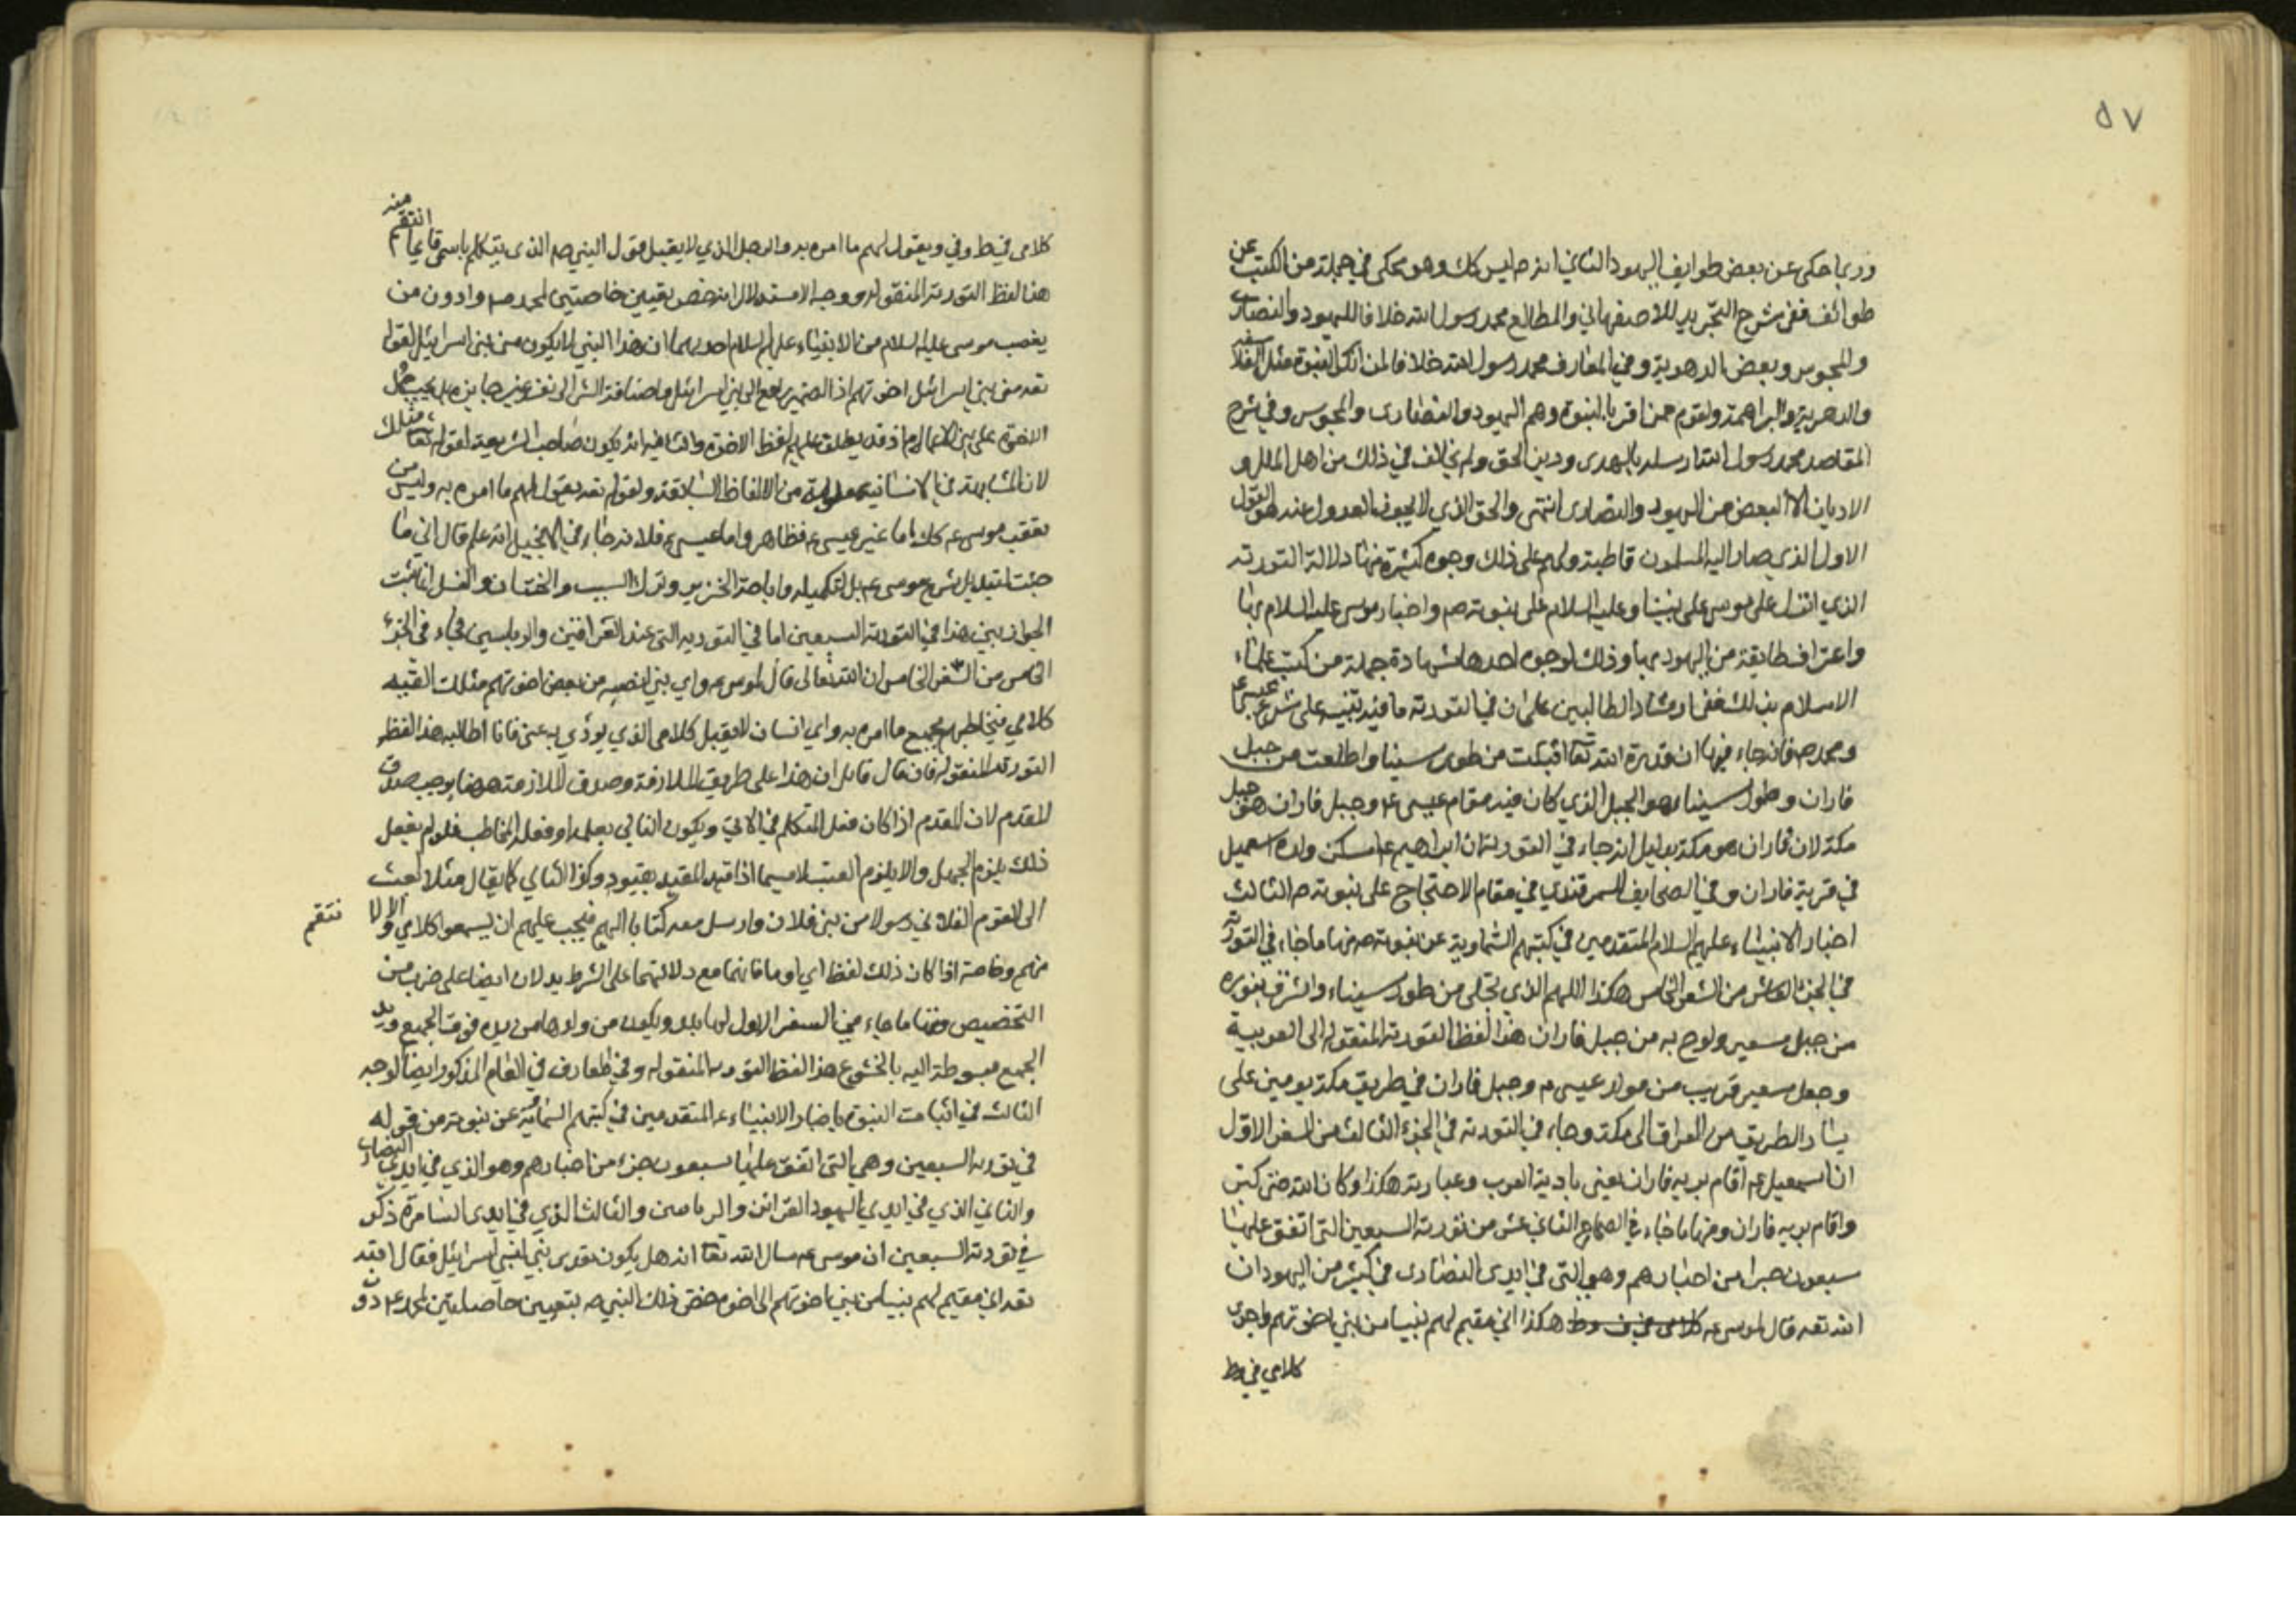 ٥٧
وربما حكى عن بعض طوايف اليهود الثاني انه ص ليس كك وهو محكي في جملة من الكتب عن
طوائف ففي شرح التجريد للاصفهاني والمطالع محمد رسول الله خلافا لليهود والنصارى
والمجوس وبعض الدهرية وفي المعارف محمد رسول الله خلافا لمن انكر النبوة مثل الفلاسفه
والدهرية والبراهمة ولقوم ممن اقر بالنبوة وهم اليهود والنصارى والمجوس وفي شرح
المقاصد محمد رسول الله ارسله بالهدى ودين الحق ولم يخالف في ذلك من اهل الملل و
الاديان الا البعض من اليهود والنصارى انتهى والحق الذي لا يجوز العدول عنه هو القول
الاول الذي صار اليه المسلمون قاطبة ولهم على ذلك وجوه كثيرة منها دلالة التورته
الذي انزل على موسى على نبينا وعليه السلام على نبوته ص واخبار موسى عليه السلام بها
واعتراف طايفة من اليهود بها وذلك لوجوه احدها شهادة جملة من كتب علماء
الاسلام بذلك ففي ارشاد الطالبين على ان في التورته ما فيه تنبيه على شرع عيسى ع
ومحمد ص فانه جاء فيها ان قدرة الله تعا اقبلت من طور سينا واطلعت من جبل
فاران وطور سينا هو الجبل الذي كان فيه مقام عيسى ع وجبل فاران هو جبل
مكة لان فاران هو مكة بدليل انه جاء في التورته ان ابراهيم ع اسكن ولده اسمعيل
في قرية فاران وفي الصحايف للسمرقندي في مقام الاحتجاج على نبوته ص الثالث
اخبار الانبياء عليهم السلام المتقدمين في كتبهم السماوية عن نبوته ص منها ما جاء في التورته
في الجزء العاشر من السفر الخامس هكذا اللهم الذي تجلى من طور سيناء واشرق بنوره
من جبل سعير ولوح به من جبل فاران هذا لفظ التورته المنقوله الى العربية
وجعل سعير قريب من مولد عيسى ع وجبل فاران في طريق مكة يومين على
يسار الطريق من العراق الى مكة وجاء في التورته في الجزء الثالث من السفر الاول
ان اسمعيل ع اقام بريه فاران يعني بادية العرب وعبارته هكذا وكان الله
واقام بريه فاران ومنها ما جاء في الثاني عشر من تورته السبعين التي اتفق عليها
سبعون حبرا من احبارهم وهو التي في ايدى النصارى في كثير من اليهود ان
الله تعه قال لموسى ع هكذا اني مقيم لهم نبيا من بني اخوتهم واجرى
كلامي في
كلامى في وفي ويقول لهم ما امره به والرجل الذي لا يقبل قول النبي ص الذي يتكلم باسمى فانا انتقم منه
هذا لفظ التورته المنقوله ووجه الاستدلال انه خص بقيين خاصتين لمحمد ص وادون من
بعد موسى عليه السلام من الانبياء عليهم السلام احديهما ان هذا النبي لا يكون من بنى اسرائيل لقوله
تعه من بنى اخوتهم اذ الضمير راجع الى بنى اسرائيل واضافة الشئ الى نفسه غير جايزه بل يجب حمل
الاخوة على بنى الاعمام اذ قد يطلق عليهم لفظ الاخوة والثانيه انه يكون صاحب الشريعة لقوله تعا مثلك
لان المشابهة في الانسانية معلومة من الالفاظ السابقة ولقوله تعه يقول لهم ما امره به وليس من
تعقب موسى ع كك اما غير عيسى ع فظاهر واما عيسى ع فلانه جاء في الانجيل انه ع قال انى ما
جئت لتبديل شرع موسى ع بل لتكميله واباحة الخنزير وترك السبت والختان والغسل
هذا في التورته السبعين اما في التورته التي عند القرائين والرباسين فجاء في الجزء
الخامس من السفر الخامس ان الله تعالى قال لموسى ع واي بني انصبه من بعض اخوتهم مثلك القيه
كلامي فيخاطبهم بجميع ما امره به واي انسان لا يقبل كلامى الذي يؤدي به عنى فانا اطالبه هذا لفظ
التورته المنقوله فان قال قائل ان هذا على طريق الملازمة وصدق الملازمة ههنا يوجب صدق
المقدم لان المقدم اذا كان فعل المتكلم في الاتي ويكون التالي بعلمه او فعل المخاطب فلو لم يفعل
ذلك يلزم الجهل والا يلزم العبث لاسيما اذا قيد المقيد بقيود وكذا التالي كما يقال مثلا ابعث
الى القوم الفلاني رسولا من بنى فلان وارسل معه كتابا اليهم فيجب عليهم ان يسمعوا كلامي والا لا ننتقم
منهم وخاصة اذا كان ذلك لفظ اي او ما فانهما مع دلالتهما على الشرط يدلان ايضا على ضرب من
التخصيص ومنها ما جاء في السفر الاول ويكون من ولدها من يده فوق الجميع ويد
الجميع مبسوطة اليه بالخشوع هذا لفظ التورته المنقوله وفي المعارف في المقام المذكور ايضا الوجه
الثالث في اثبات النبوة باخبار الانبياء ع المتقدمين في كتبهم السمائية عن نبوته من قوله
في تورته السبعين وهي التي اتفق عليها سبعون حبرا من احبارهم وهو الذي في ايدي النصارى
والثاني الذي في ايدي اليهود القرائن والرباسين والثالث الذي في ايدى السامرة ذكر
في تورته السبعين ان موسى ع سال الله تعا انه هل يكون بعدى نبي لبني اسرائيل فقال
تعه اني مقيم لهم نبيا من بني اخوتهم الى اخره فخص ذلك النبي ص بتعيين خاصيتين لمحمد ع